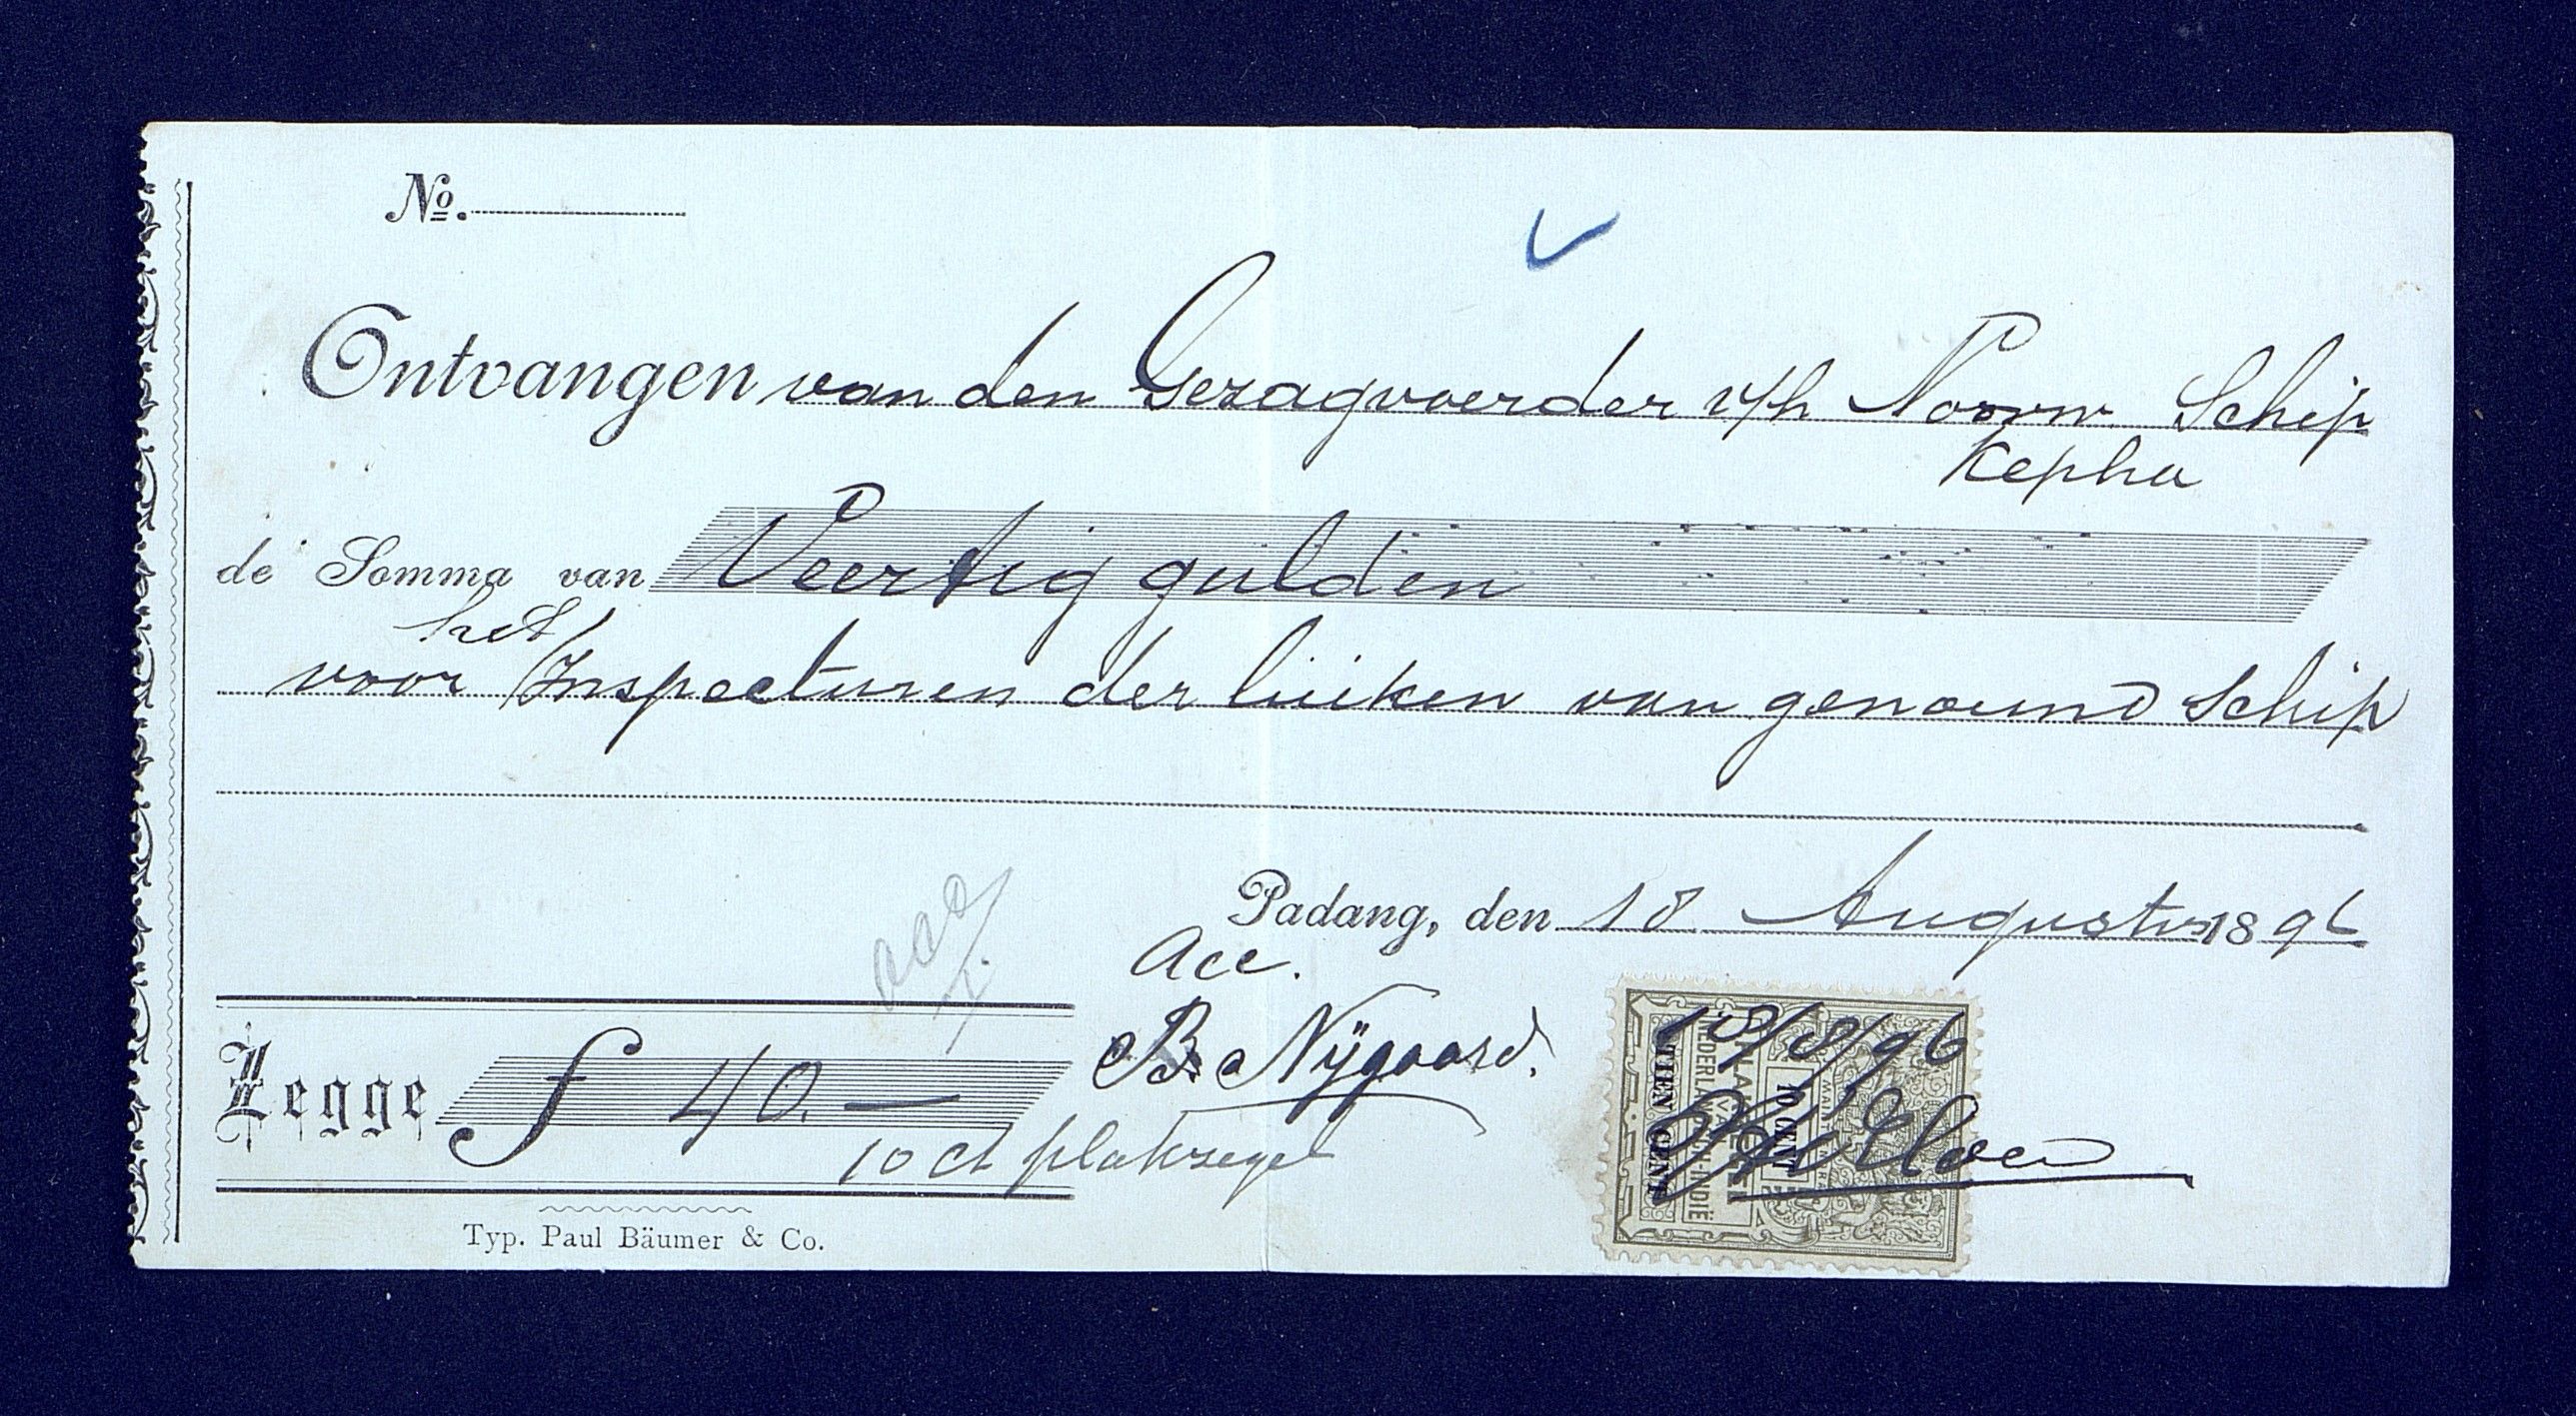 No.
Ontvangen van den Gezagvoerder v/h Noorw Schip
Kepha
de Somma van Veertig gulden
het
voor Inspecturen der luiken van genoemd Schip
Padang, den 18 Augustus 1896
Acc.
B. Nÿgaard.
Legge f 40.—
10 ct plakzegel
18/8/96
NEDERL
INDIË
10 CENT
TIEN CENT
Typ. Paul Bäumer & Co.